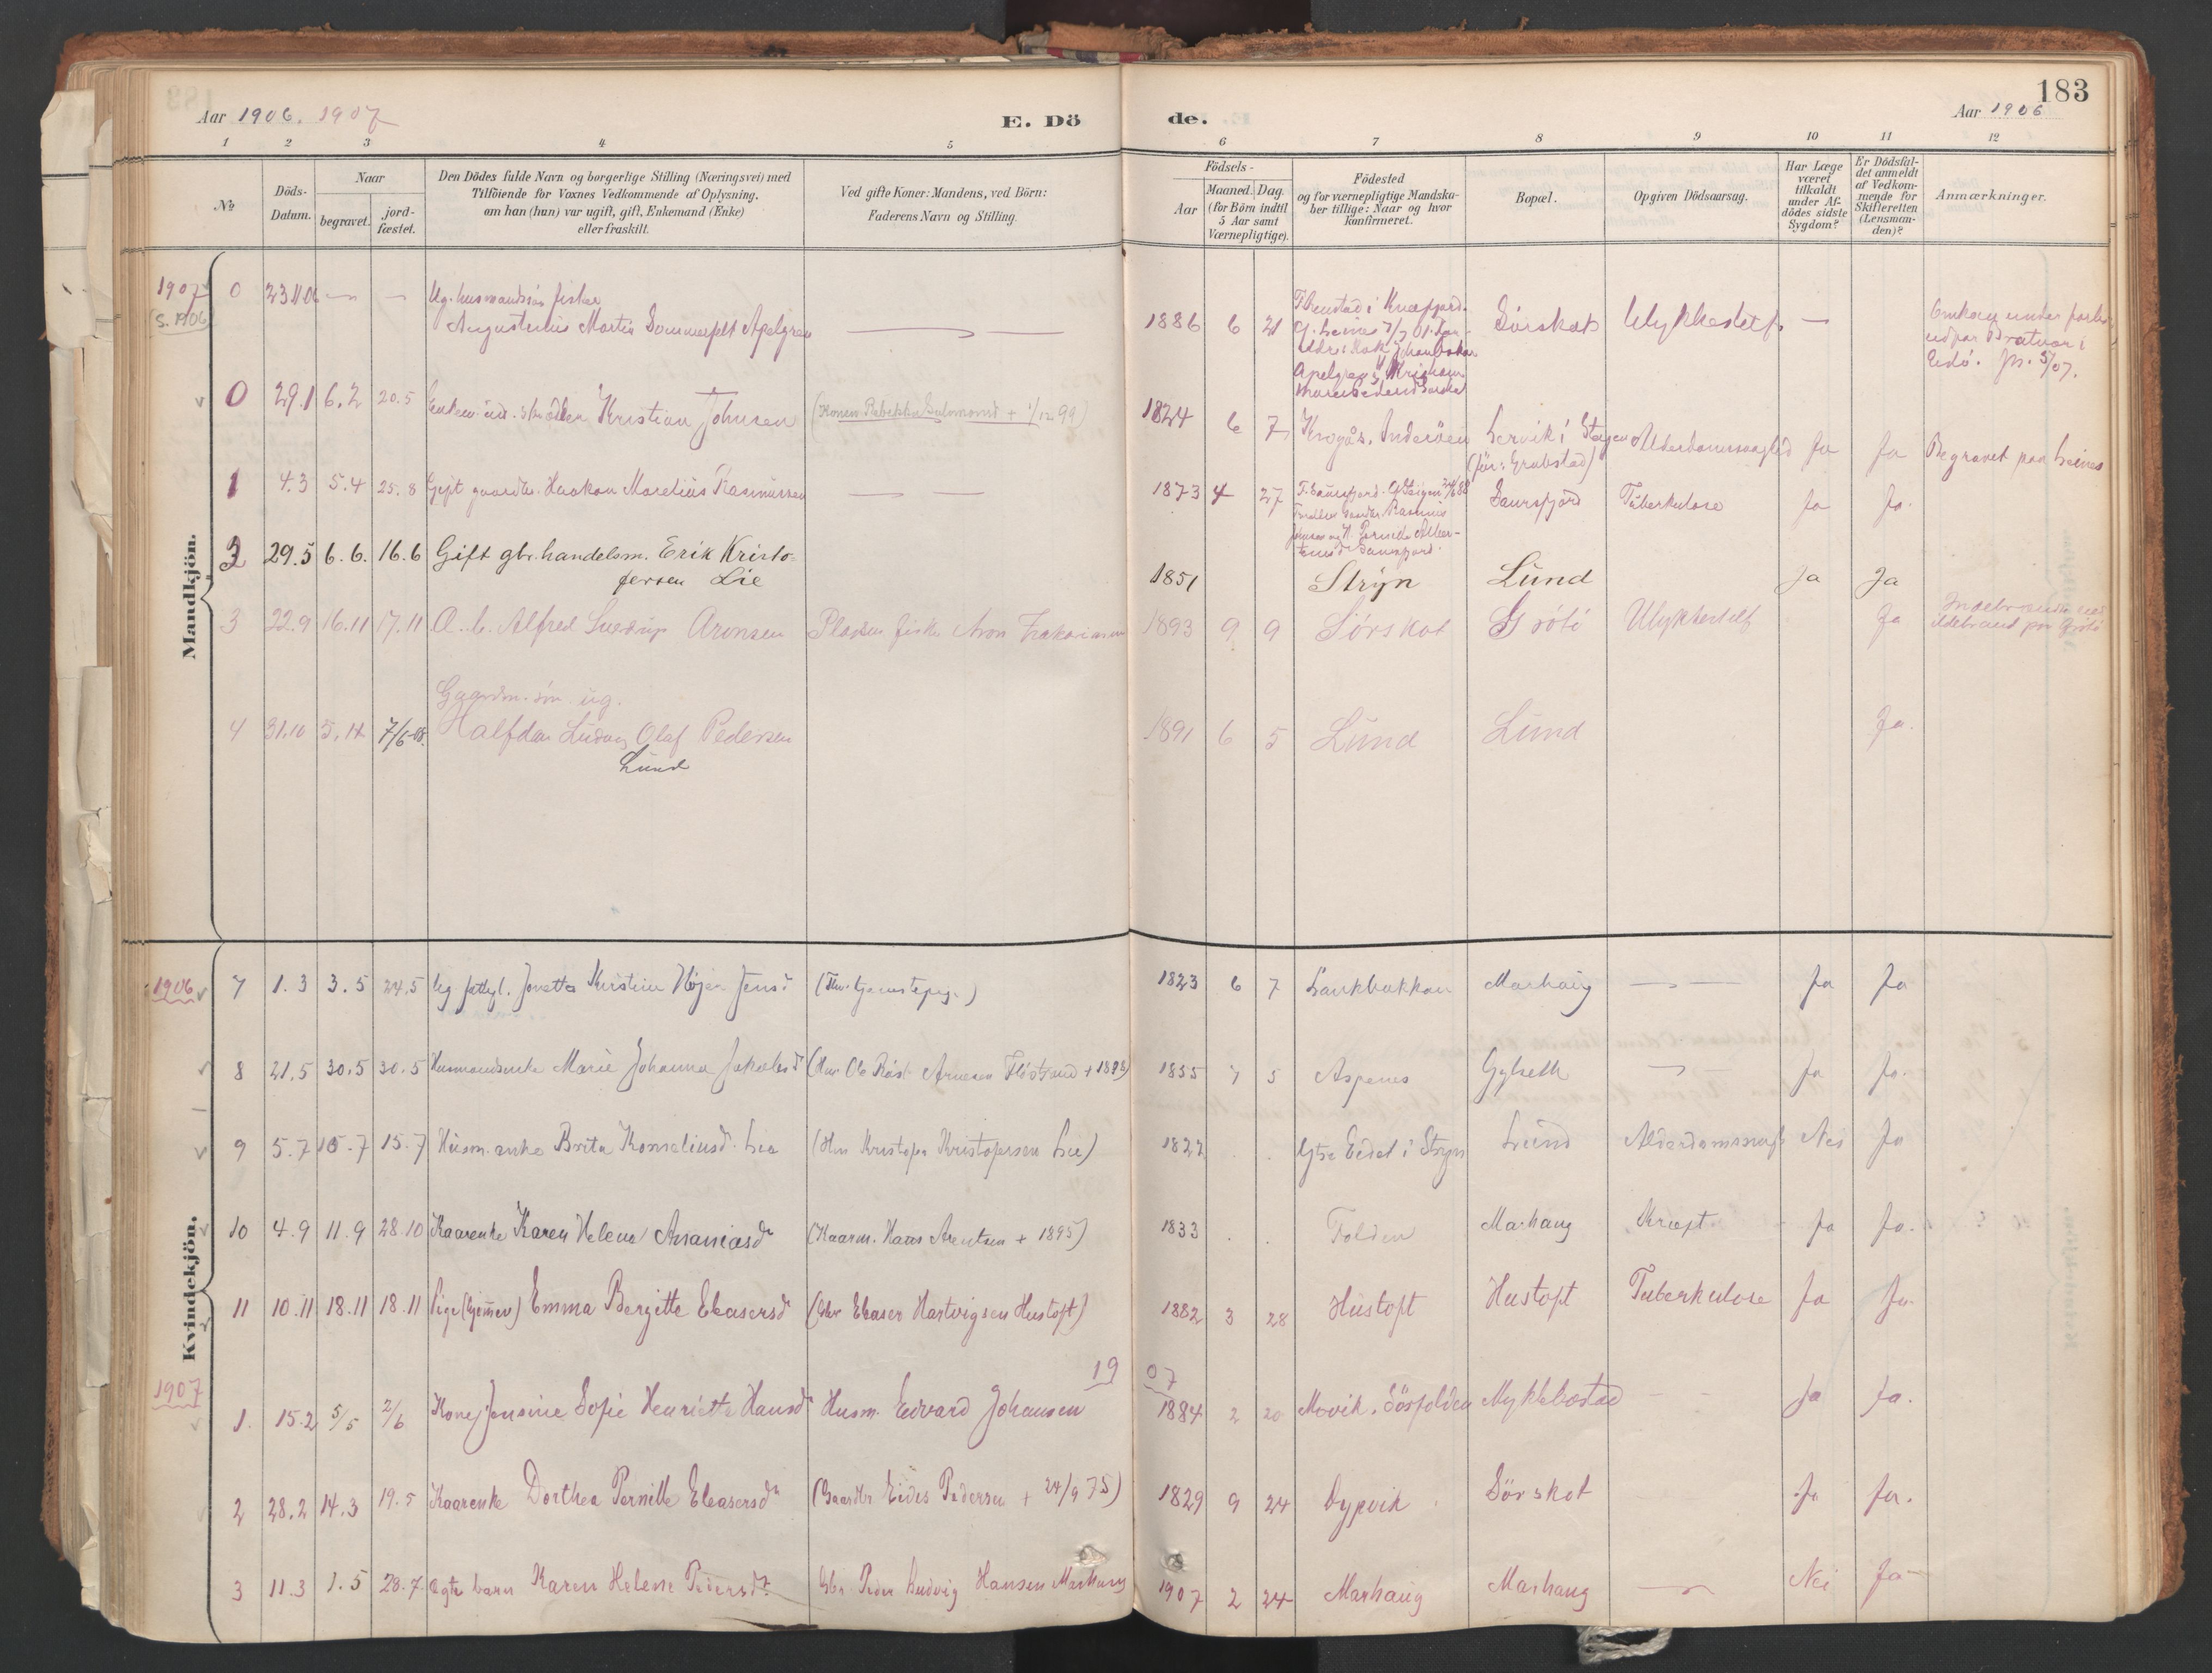 183
Aar 1906. 1907
E. Dö
de.
Aar 1906
1 2 3 4 5 6 7 8 9 10 11 12
No
Döds-
Datum.
Naar
begravet.
jord-
fæstet.
Den Dödes fulde Navn og borgerlige Stilling (Næringsvei) med
Tilföiende for Voxnes Vedkommende af Oplysning,
om han (hun) var ugift, gift, Enkemand (Enke)
eller fraskilt.
Ved gifte Koner: Mandens, ved Börn:
Faderens Navn og Stilling.
Födsels-
Aar
Maaned. Dag.
(for Börn indtil
5 Aar samt
Værnepligtige).
Födested
og for værnepligtige Mandska-
ber tillige: Naar og hvor
konfirmeret.
Bopæl.
Opgiven Dödsaarsag.
Har Læge
været
tilkaldt
under Af-
dödes sidste
Sygdom?
Er Dödsfal-
det anmeldt
af Vedkom-
mende for
Skifteretten
(Lensman-
den)?
Anmærkninger.
Mandkjön.
1907
(s. 1906)
0 23.11.06 — — Ug. husmandssön fisker
Augustinius Martin Sommerfelt Apelgren — — 1886 6 21 Sörskot Ulykkestilf. —
Omkom under
i
Eidö. 5/07.
0 29.1 6.2 20.5 Kristian Johnsen (Konen Rebekka Salomonsd + 1/12 99) 1824 6 7 Krogås, Inderöen Lervik i Steigen Alderdomssvaghed Ja Ja Begravet paa Leines
1 4.3 5.4 25.8 Gift gaardbr. Haakon Marelius Rasmussen — — 1873 4 27 Saursfjord Tuberkulose Ja Ja.
2 29.5 6.6. 16.6 Gift gbr. handelsm. Erik Kristo-
fersen Lie 1851 Stryn Lund Ja Ja
3 22.9 16.11 17.11 Æ. b. Alfred Sverdrup Aronsen Pladsm. fisker Aron Zakariassen 1893 9 9 Sörskot Gröti Ulykkestilf Ja Indebrændte ved
ildebrand paa Gröti
Gaardm. sön ug.
4 31.10 5.11 7/6-08. Halfdan Ludvig Olaf Pedersen
Lund 1891 6 5 Lund Lund Ja.
Kvindekjön.
1906
7 1.3 3.5 24.5 Ug fattigl. Jonetta Kristine Höjer Jensd 1823 6 7 Laukbakken Marhaug — — Ja Ja
8 21.5 30.5 30.5 Husmandsenke Marie Johanna Jakobsd (Hm Ole Röst Arnesen Flöstrand + 1893) 1855 7 5 Aspenes Gylseth — Ja Ja.
9 5.7 15.7 15.7 Husm. enke Brita Korneliusd. Lie (Hm Kristofer Kristofersen Lie) 1822 . . Ytre Eidet i Stryn Lund Alderdomssvagh Nei Ja
10 4.9 11.9 28.10 Kaarenke Karen Helena Ananiasdr (Kaarm. Hans Arentsen + 1895) 1833 . . Folden Marhaug Kræft Ja Ja.
11 10.11 18.11 18.11 Pige (hjemmev) Emma Bergitte Eleasersdr (Gbr Eleaser Hartvigsen Hustoft) 1882 3 28 Hustoft Hustoft Tuberkulose Ja Ja.
1907
19 07
1. 15.2 5/5 2/6 Kone Jensine Sofie Henriette Hansdr Husm. Edvard Johansen 1884 2 20 Movik. Sörfolden Myklebostad - - Ja Ja.
2 28.2 14.3 19.5 Kaarenke Dorthea Pernille Eleasersdr (Gaardbr Eidis Pedersen + 24/9 75) 1829 9 24 Dypvik Sörskot Ja Ja.
3 11.3 1.5 28.7 Ægte barn Karen Helene Pedersdr. Gbr. Peder Ludvig Hansen Marhaug 1907 2 24 Marhaug Marhaug — Nei Ja